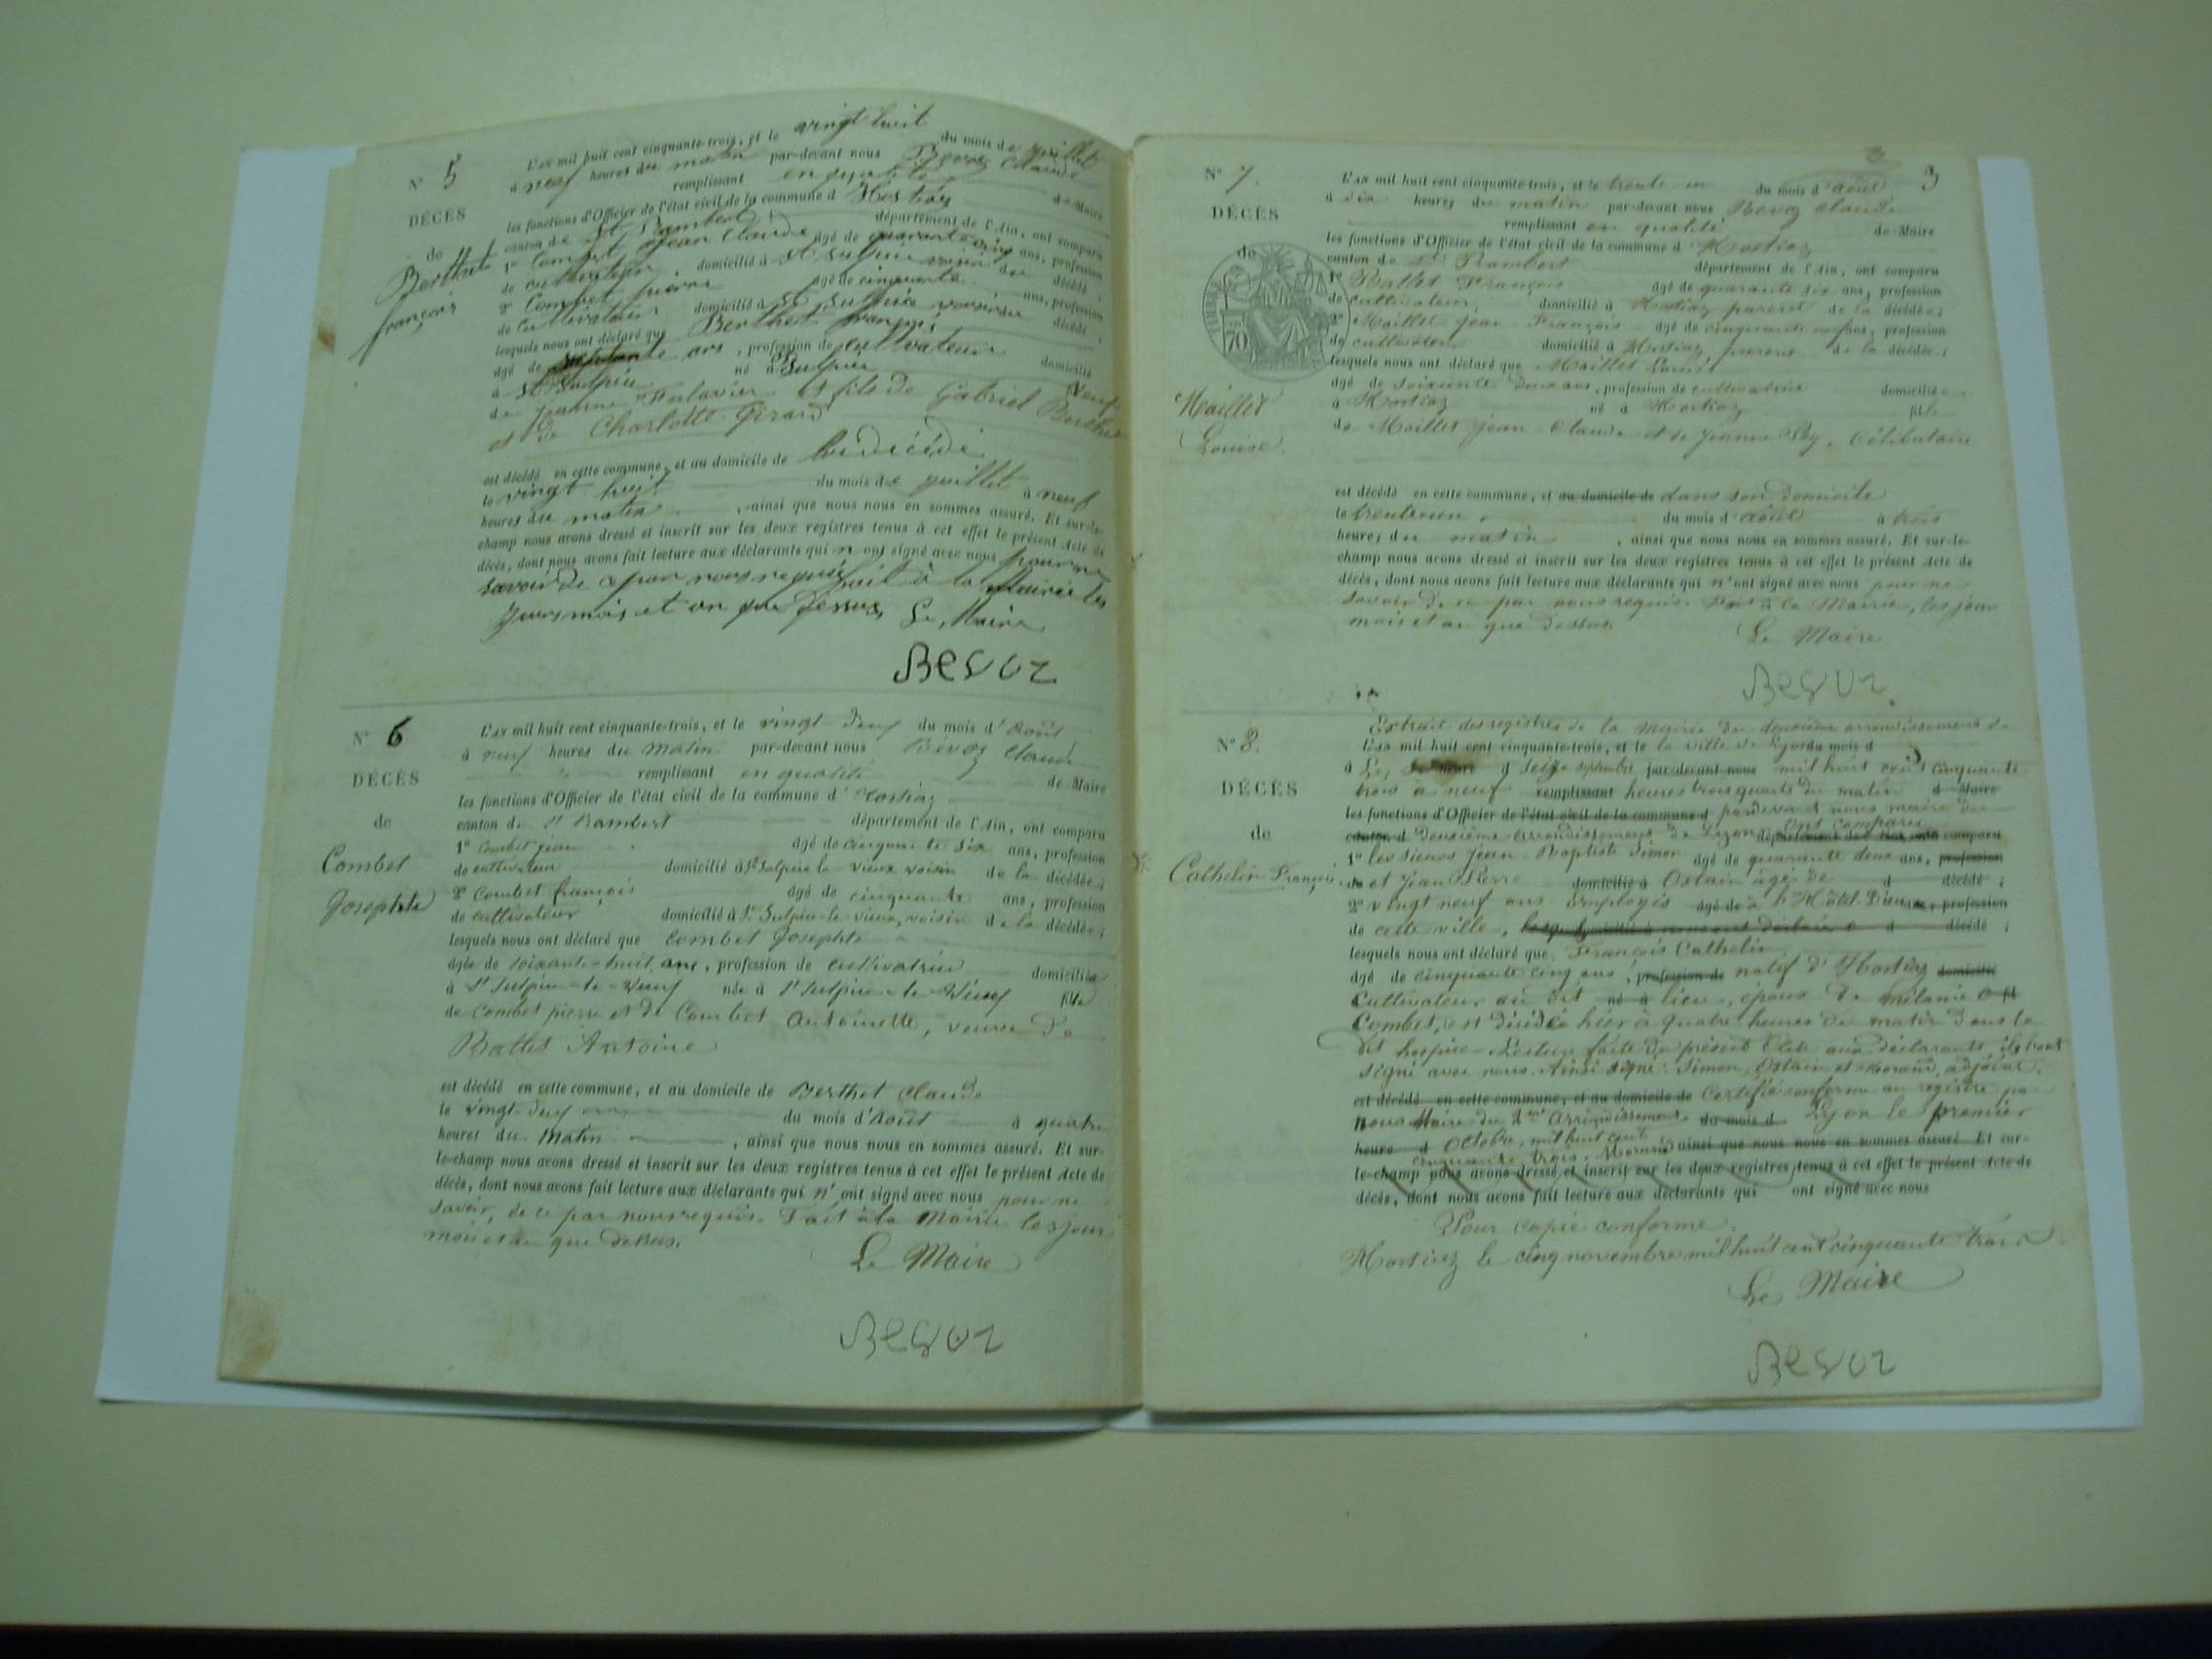 N° 5
DÉCÈS
de
Berthet
françois
L'AN mil huit cent cinquante-trois, et le vingt huit du mois de juillet
à neuf heures du matin par-devant nous Bevoz Claude
remplissant en qualité de Maire
les fonctions d'Officier de l'état civil de la commune d'Hostiaz
canton de St Rambert département de l'Ain, ont comparu
1° Combet Jean Claude âgé de quarante cinq ans, profession
de cultivateur, domicilié à St Sulpice voisin du décédé;
2° Combet pierre âgé de cinquante ans, profession
de cultivateur domicilié à St Sulpice voisin du décédé;
lesquels nous ont déclaré que Berthet françois
âgé de ans, profession de cultivateur domicilié
à St Sulpice né à Sulpice veuf
de Jeanne et fils de Gabriel Berthet
et de Charlotte Girard
est décédé en cette commune, et au domicile de lui décédé
le vingt huit du mois de juillet à neuf
heures du matin, ainsi que nous nous en sommes assuré. Et sur-le-
champ nous avons dressé et inscrit sur les deux registres tenus à cet effet le présent Acte de
décès, dont nous avons fait lecture aux déclarants qui n'ont signé avec nous pour ne
savoir de ce par nous requis fait à la Mairie les
jours mois et an que dessus, Le Maire
Bevoz
N° 6
DÉCÈS
de
Combet
Josephte
L'AN mil huit cent cinquante-trois, et le vingt-deux du mois d'Août
à neuf heures du matin par-devant nous Bévoz Claude
remplissant en qualité de Maire
les fonctions d'Officier de l'état civil de la commune d'Hostiaz
canton de St Rambert département de l'Ain, ont comparu
1° Combet jean âgé de cinquante six ans, profession
de cultivateur domicilié à St Sulpice le vieux voisin de la décédée;
2° Combet françois âgé de cinquante ans, profession
de cultivateur domicilié à St Sulpice-le-vieux, voisin de la décédée;
lesquels nous ont déclaré que Combet Josephte
âgée de soixante-huit ans, profession de cultivatrice domiciliée
à St Sulpice-le-vieux née à St Sulpice-le-vieux fille
de Combet pierre et de Combet Antoinette, veuve de
Ballet Antoine
est décédé en cette commune, et au domicile de Berthet Claude
le vingt-deux du mois d'Août à quatre
heures du matin, ainsi que nous nous en sommes assuré. Et sur-
le-champ nous avons dressé et inscrit sur les deux registres tenus à cet effet le présent Acte de
décès, dont nous avons fait lecture aux déclarants qui n'ont signé avec nous pour ne
savoir, de ce par nous requis. Fait à la Mairie les jour
mois et an que dessus.
Le Maire
Bevoz
3
N° 7.
DÉCÈS
de
TIMBRE
70
Maillet
Louise
L'AN mil huit cent cinquante-trois, et le trente un du mois d'août
à dix heures du matin par-devant nous Bevoz Claude
remplissant en qualité de Maire
les fonctions d'Officier de l'état civil de la commune d'Hostiaz
canton de St Rambert département de l'Ain, ont comparu
1° Ballet François âgé de quarante six ans, profession
de cultivateur domicilié à Hostiaz parent de la décédée;
2° Maillet jean-François âgé de cinquante neuf ans, profession
de cultivateur domicilié à Hostiaz parent de la décédée;
lesquels nous ont déclaré que Maillet Louise
âgé de soixante deux ans, profession de cultivatrice domiciliée
à Hostiaz né à Hostiaz fille
de Maillet jean-Claude et de Jeanne Rey, Célibataire
est décédé en cette commune, et au domicile de dans son domicile
le trente un du mois d'août à trois
heures du matin, ainsi que nous nous en sommes assuré. Et sur-le-
champ nous avons dressé et inscrit sur les deux registres tenus à cet effet le présent Acte de
décès, dont nous avons fait lecture aux déclarants qui n'ont signé avec nous pour ne
savoir de ce par nous requis. Fait à la Mairie, les jour
mois et an que dessus.
Le Maire
Bevoz
N° 8.
DÉCÈS
de
Cathelin François
Extrait des registres de la Mairie du deuxième arrondissement de
L'AN mil huit cent cinquante-trois, et le la ville de Lyon du mois d
à Le heure d seize septembre par-devant nous mil huit cent cinquante
trois à neuf remplissant heures trois quarts du matin d Maire
les fonctions d'Officier de l'état civil de la commune d pardevant nous maire du
canton d deuxième arrondissement de Lyon ont comparu département de l'Ain, ont comparu
1° les sieurs Jean-Baptiste Simon âgé de quarante deux ans, profession
de et Jean Pierre domicilié à Ostain âgé de d décédé;
2° vingt neuf ans Employés âgé de à l'Hôtel Dieu ans, profession
de cette ville, d décédé;
lesquels nous ont déclaré que François Cathelin
âgé de cinquante cinq ans, profession de natif d'Hostiaz domicilié
cultivateur au dit né à lieu, époux de mélanie
Combet, est décédé hier à quatre heures du matin dans le
dit hospice. Lecture faite du présent acte aux déclarants ils ont
signé avec nous. Ainsi signé: Simon, Ostain et Morand, adjoint.
est décédé en cette commune, et au domicile de Certifié conforme au registre par
nous Maire du 2me Arrondissement du mois d Lyon le premier
heure d Octobre, mil huit cent ainsi que nous nous en sommes assuré. Et sur-
cinquante trois. Morand
le-champ nous avons dressé et inscrit sur les deux registres tenus à cet effet le présent Acte de
décès, dont nous avons fait lecture aux déclarants qui ont signé avec nous
Pour copie conforme.
Hostiaz le cinq novembre mil huit cent cinquante trois
Le Maire
Bevoz